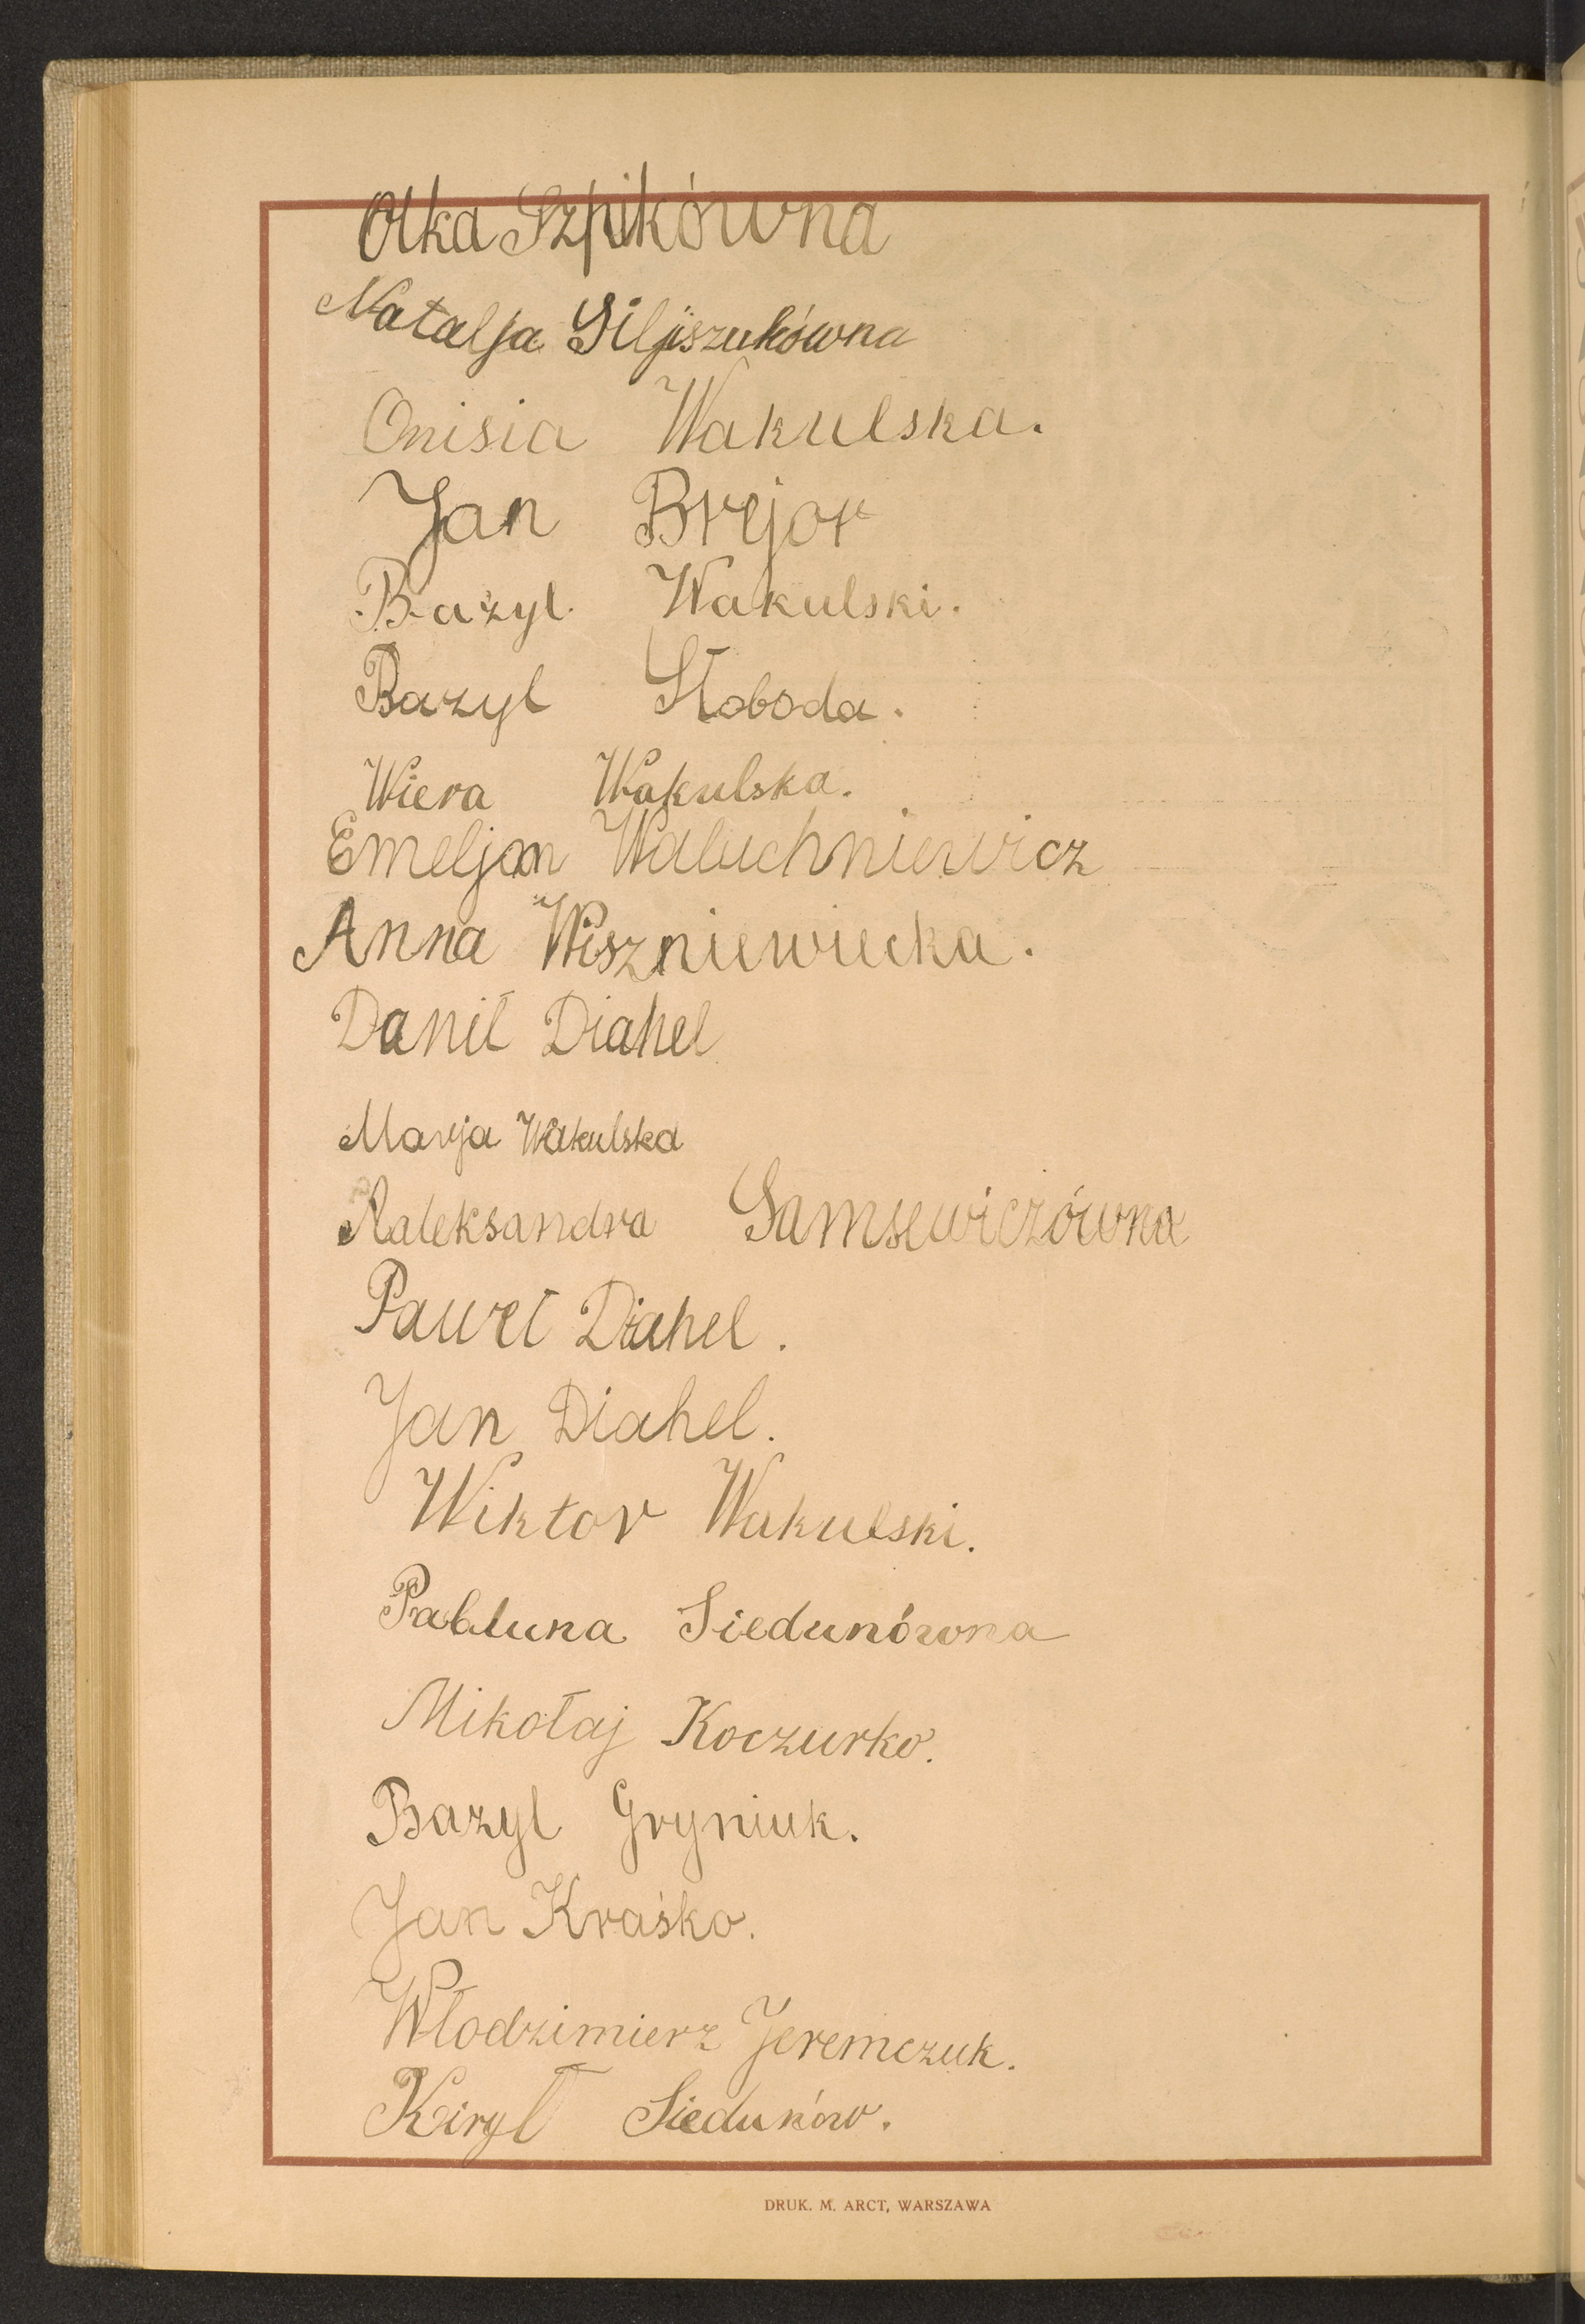 Olka Szpikówna
Natalja Giljiszukówna
Onisia Wakulska.
Jan Brejor
Bazyl Wakulski.
Bazyl Słoboda.
Wiera Wakulska.
Emeljan Waluchniewicz
Anna Wiszniewiecka.
Danił Diahel
Marja Wakulska
Aaleksandra Samsewiczówna
Paweł Diahel.
Jan Diahel.
Wiktor Wakulski.
Siedunówna
Mikołaj Koczurko.
Bazyl Gryniuk.
Jan Kraśko.
Włodzimierz Jeremczuk.
Kirył Siedunów.
DRUK. M. ARCT, WARSZAWA